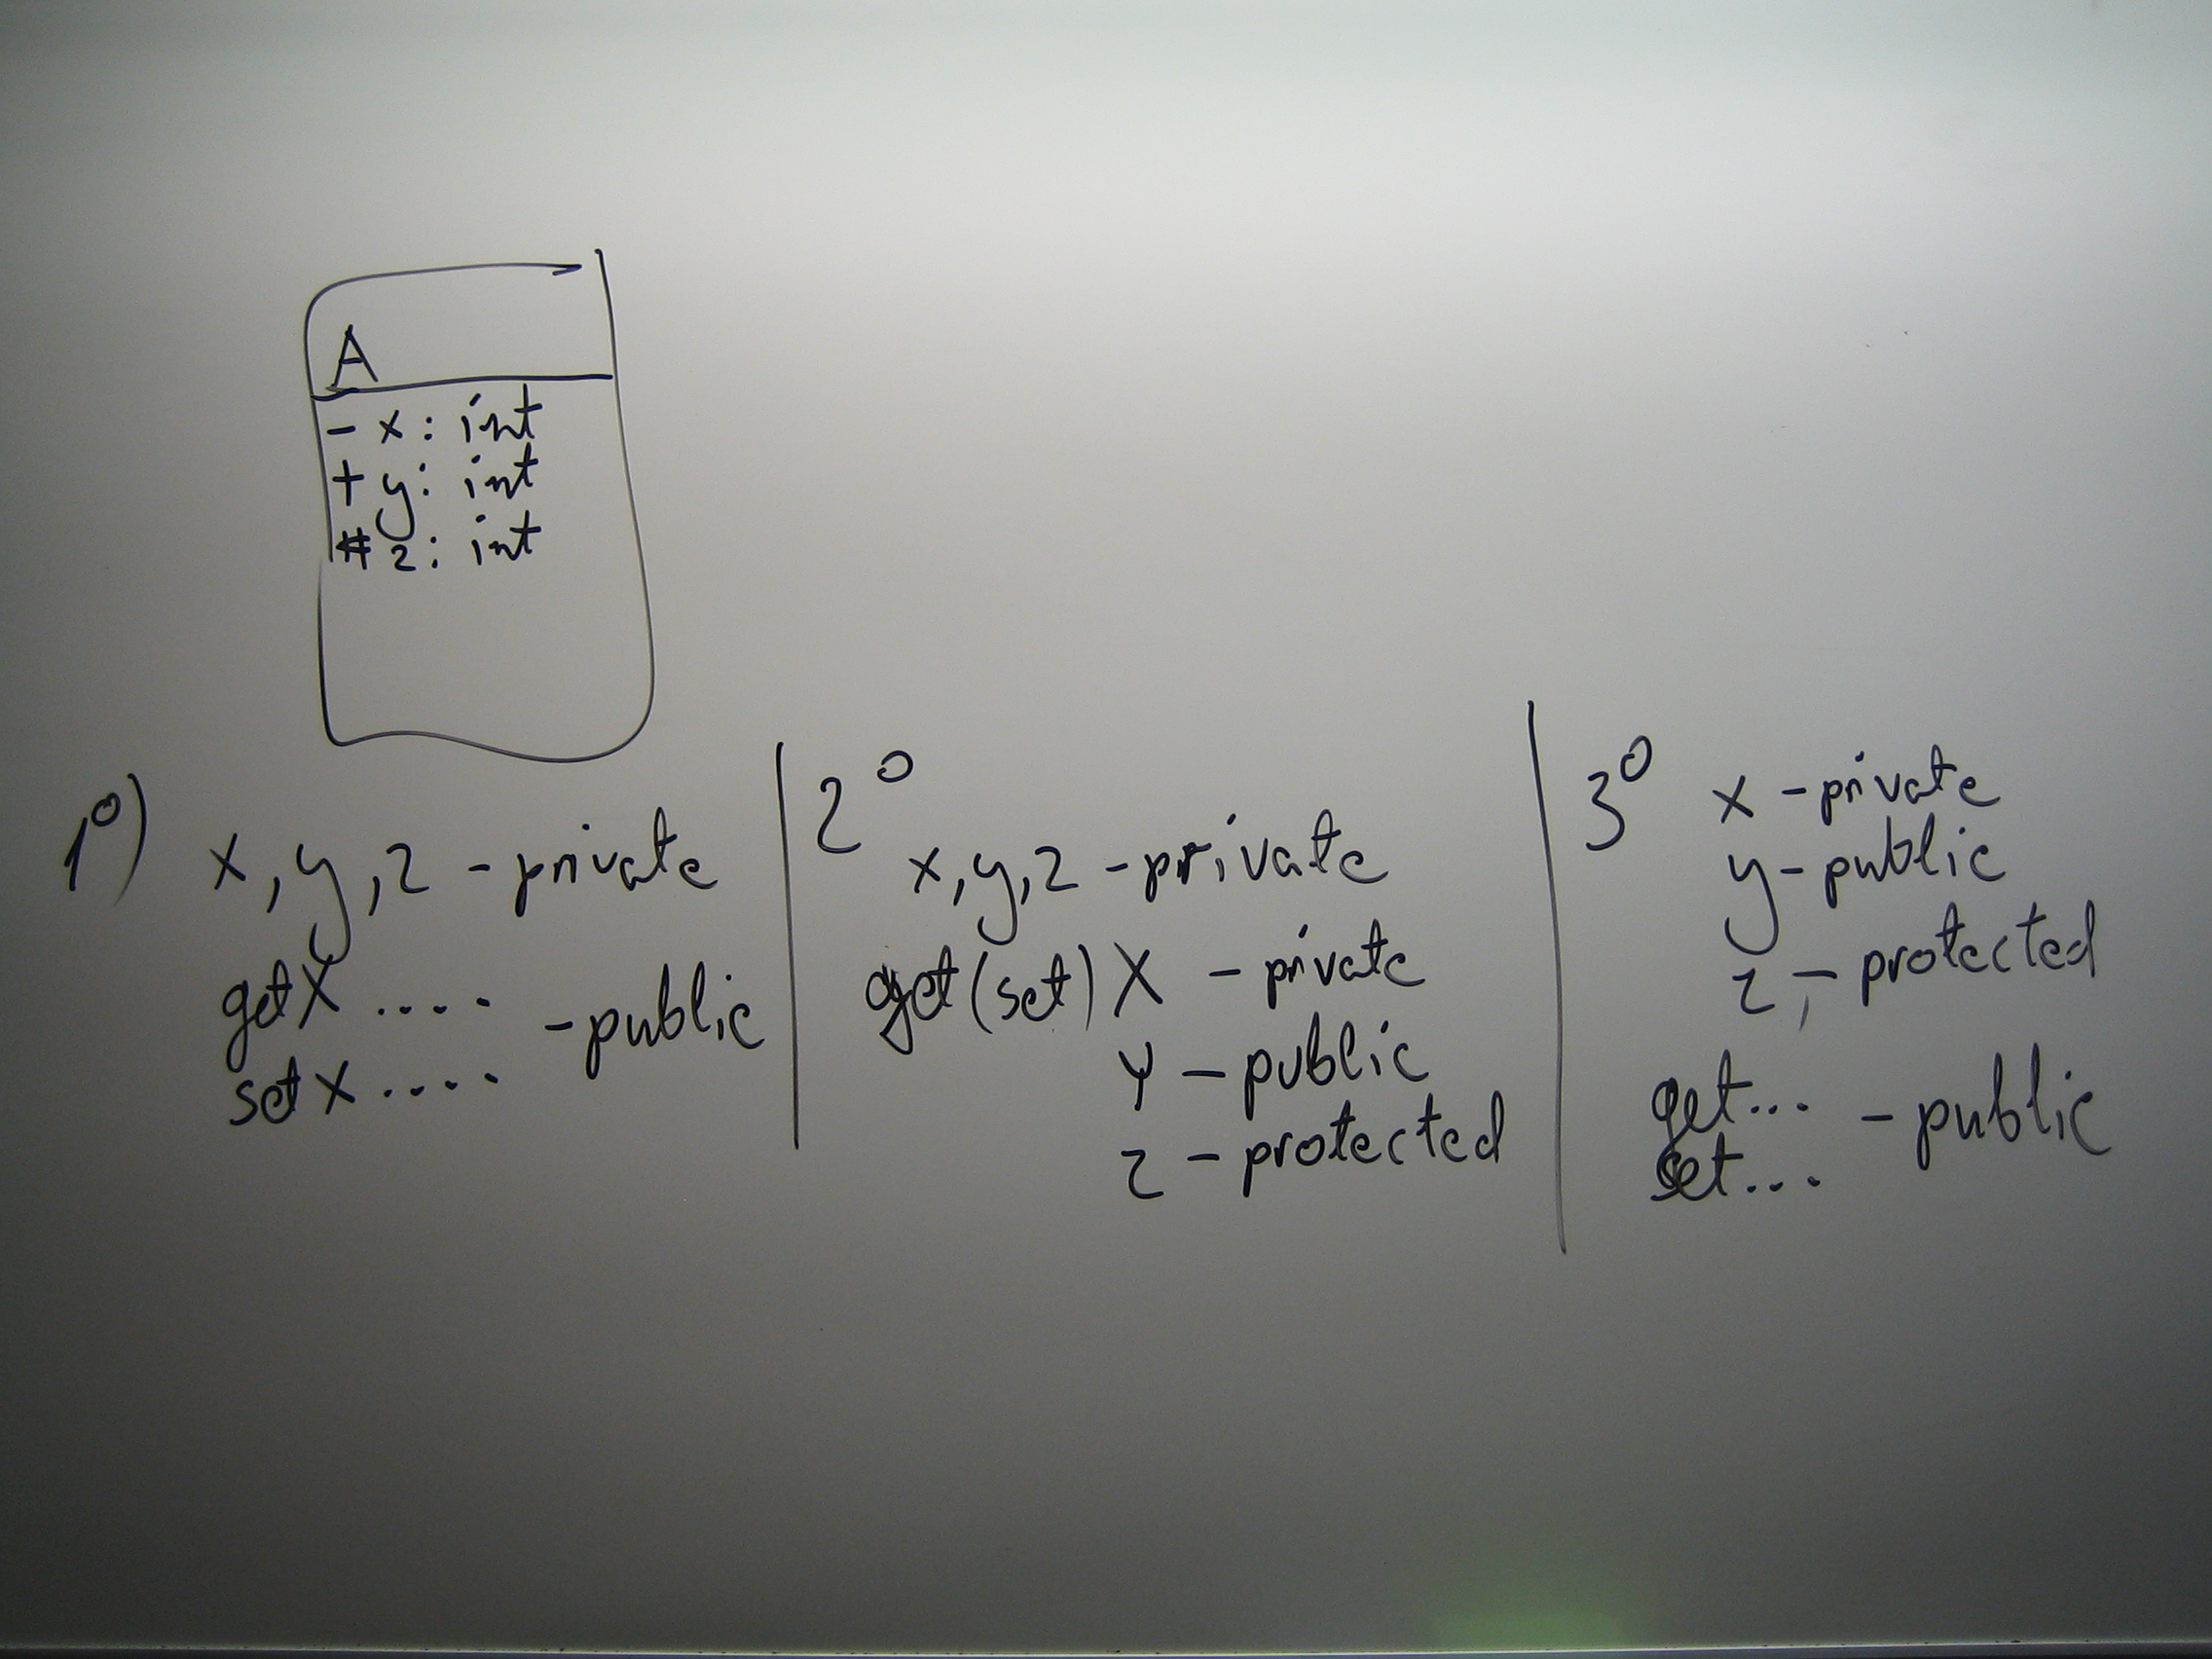 A
- x: int
+ y: int
# z: int
1°)
x, y, z - private
getX ....
- public
setX ....
2°
x, y, z - private
get(set) X - private
Y - public
z - protected
3°
x - private
y - public
z, - protected
get... - public
set...